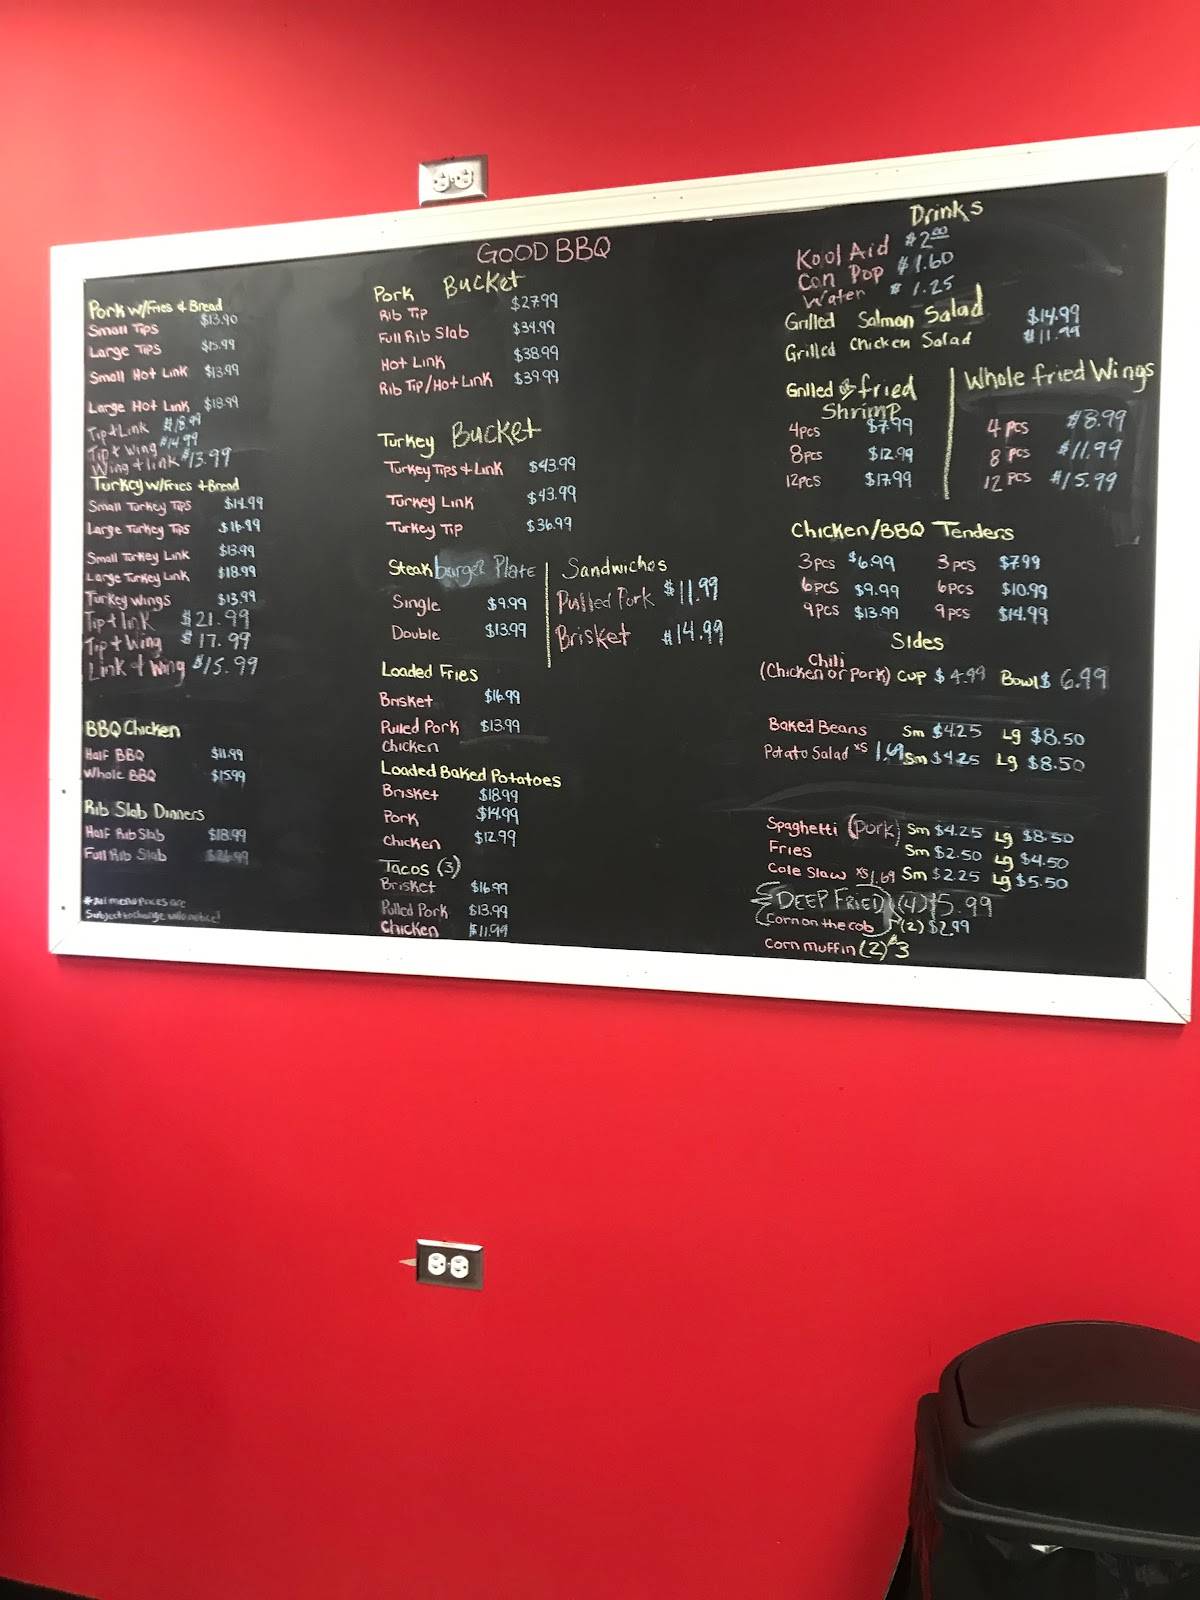 GOOD BBQ
Pork w/Fries & Bread
Small Tips $13.90
Large Tips $15.99
Small Hot Link $13.99
Large Hot Link $18.99
Tip+Link $18.99
Tip + Wing $14.99
Wing + link $13.99
Turkey w/Fries +Bread
Small Turkey Tips $14.99
Large Turkey Tips $16.99
Small Turkey Link $13.99
Large Turkey Link $18.99
Turkey Wings $13.99
Tip+link $21.99
Tip + Wing $17.99
Link + Wing $15.99
BBQ Chicken
Half BBQ $11.99
Whole BBQ $15.99
Rib Slab Dinners
Half Rib Slab $18.99
Full Rib Slab
*All menu prices are
Subject to change w/o notice!
Pork Bucket
Rib Tip $27.99
Full Rib Slab $34.99
Hot Link $38.99
Rib Tip/Hot Link $39.99
Turkey Bucket
Turkey Tips + Link $43.99
Turkey Link $43.99
Turkey Tip $36.99
Steakburger Plate
Single $9.99
Double $13.99
Sandwiches
Pulled Pork $11.99
Brisket $14.99
Loaded Fries
Brisket $16.99
Pulled Pork $13.99
Chicken
Loaded Baked Potatoes
Brisket $18.99
Pork $14.99
Chicken $12.99
Tacos (3)
Brisket $16.99
Pulled Pork $13.99
Chicken $11.99
Drinks
Kool Aid $2.00
Can Pop $1.60
Water $1.25
Grilled Salmon Salad $14.99
Grilled Chicken Salad $11.99
Grilled or fried
Shrimp
4pcs $7.99
8pcs $12.99
12pcs $17.99
Whole fried Wings
4 pcs $8.99
8 pcs $11.99
12 pcs $15.99
Chicken/BBQ Tenders
3pcs $6.99 3pcs $7.99
6pcs $9.99 6pcs $10.99
9pcs $13.99 9pcs $14.99
Sides
Chili
(Chicken or Pork) Cup $4.99 Bowl $6.99
Baked Beans Sm $4.25 Lg $8.50
Potato Salad xs 1.69 Sm $4.25 Lg $8.50
Spaghetti (pork) Sm $4.25 Lg $8.50
Fries Sm $2.50 Lg $4.50
Cole Slaw xs 1.69 Sm $2.25 Lg $5.50
DEEP FRIED (4) $5.99
Corn on the cob (2) $2.99
Corn muffin (2) $3